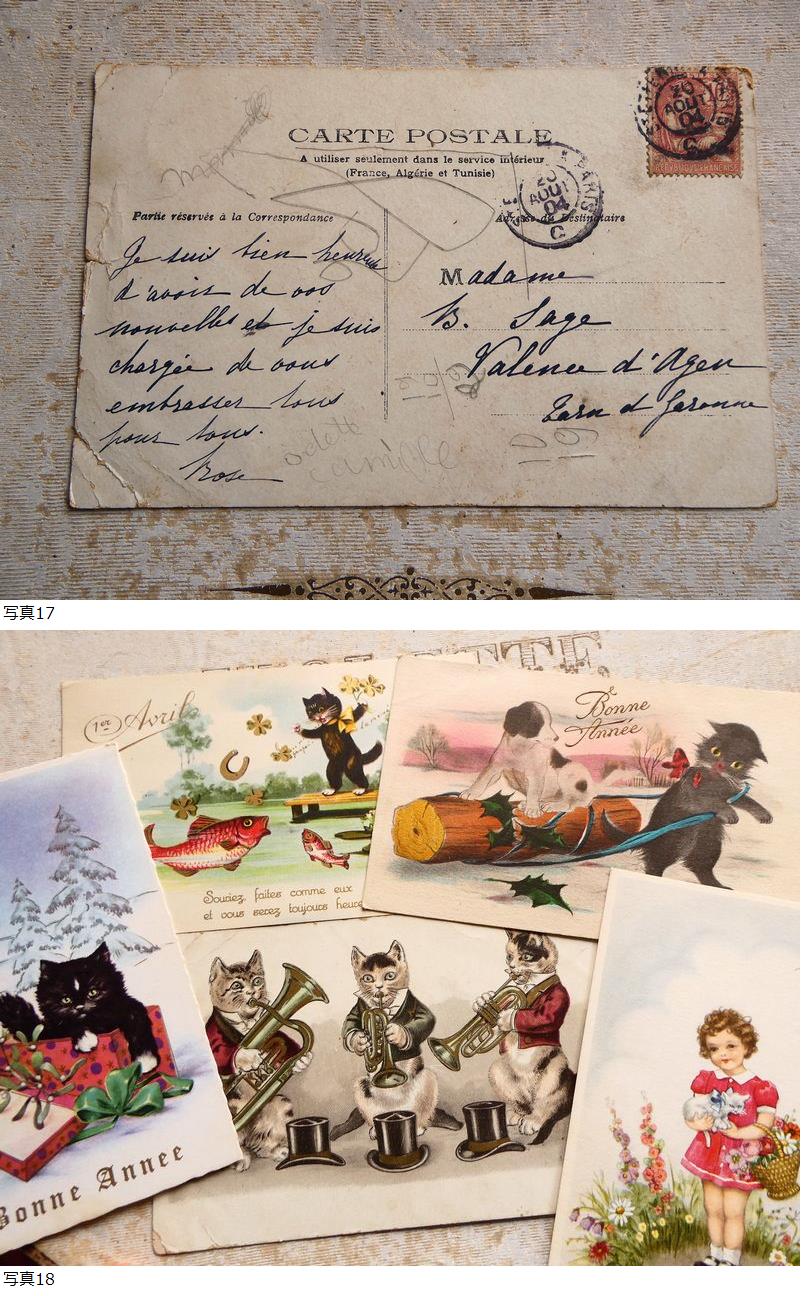 CARTE POSTALE
A utiliser seulement dans le service intérieur
(France, Algérie et Tunisie)
20
AOUT
04
C
PARIS
20
AOUT
04
C
Partie réservée à la Correspondance
Adresse du Destinataire
Je suis bien heureuse
d'avoir de vos
nouvelles et je suis
chargée de vous
embrasser tous
pour tous.
Rose
Madame
B. Sage
Valence d'Agen
Tarn et Garonne
odette
camille
写真17
1er Avril
Souriez, faites comme eux
et vous serez toujours heure
Bonne
Année
Bonne Annee
写真18